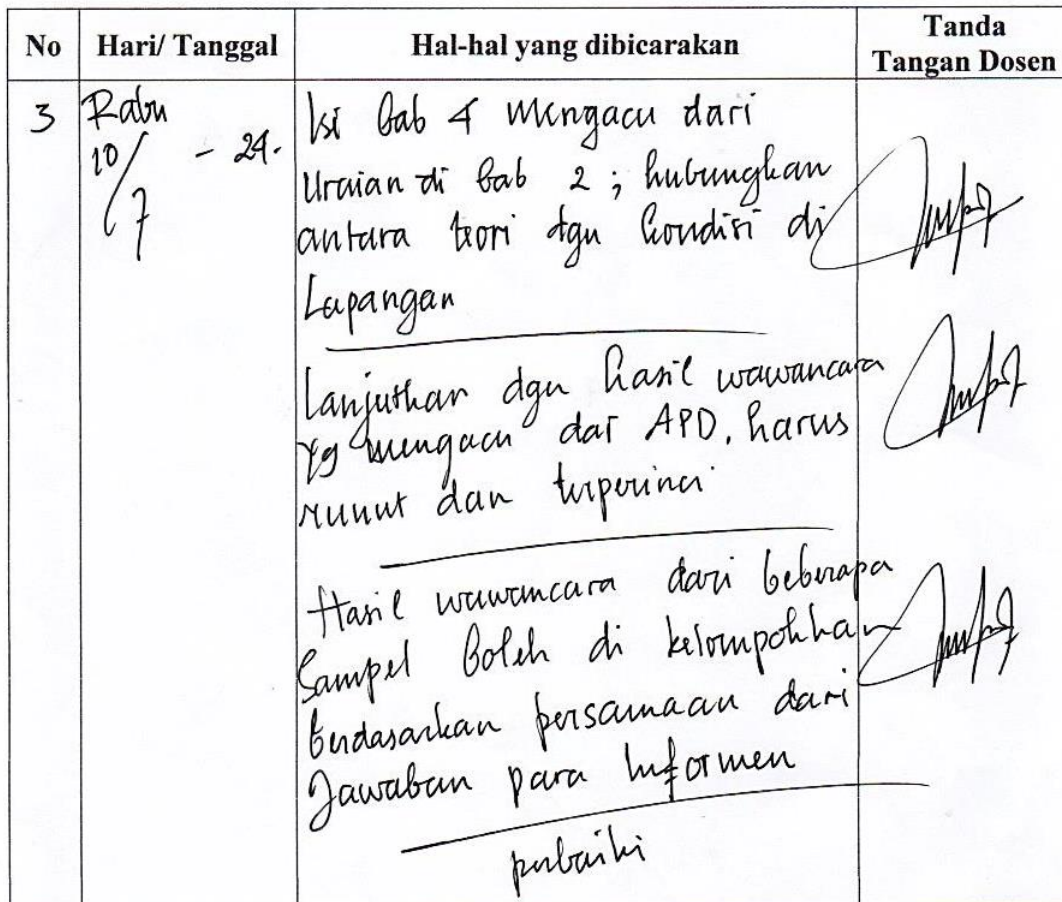 No Hari/ Tanggal Hal-hal yang dibicarakan Tanda Tangan Dosen
3 Rabu 10/7 - 24.
Isi bab 4 mengacu dari
Uraian di bab 2 ; hubungkan
antara teori dgn kondisi di
Lapangan
Lanjutkan dgn hasil wawancara
yg mengacu dari APD. harus
runut dan terperinci
Hasil wawancara dari beberapa
Sampel boleh di kelompokkan
berdasarkan persamaan dari
Jawaban para Informen
perbaiki